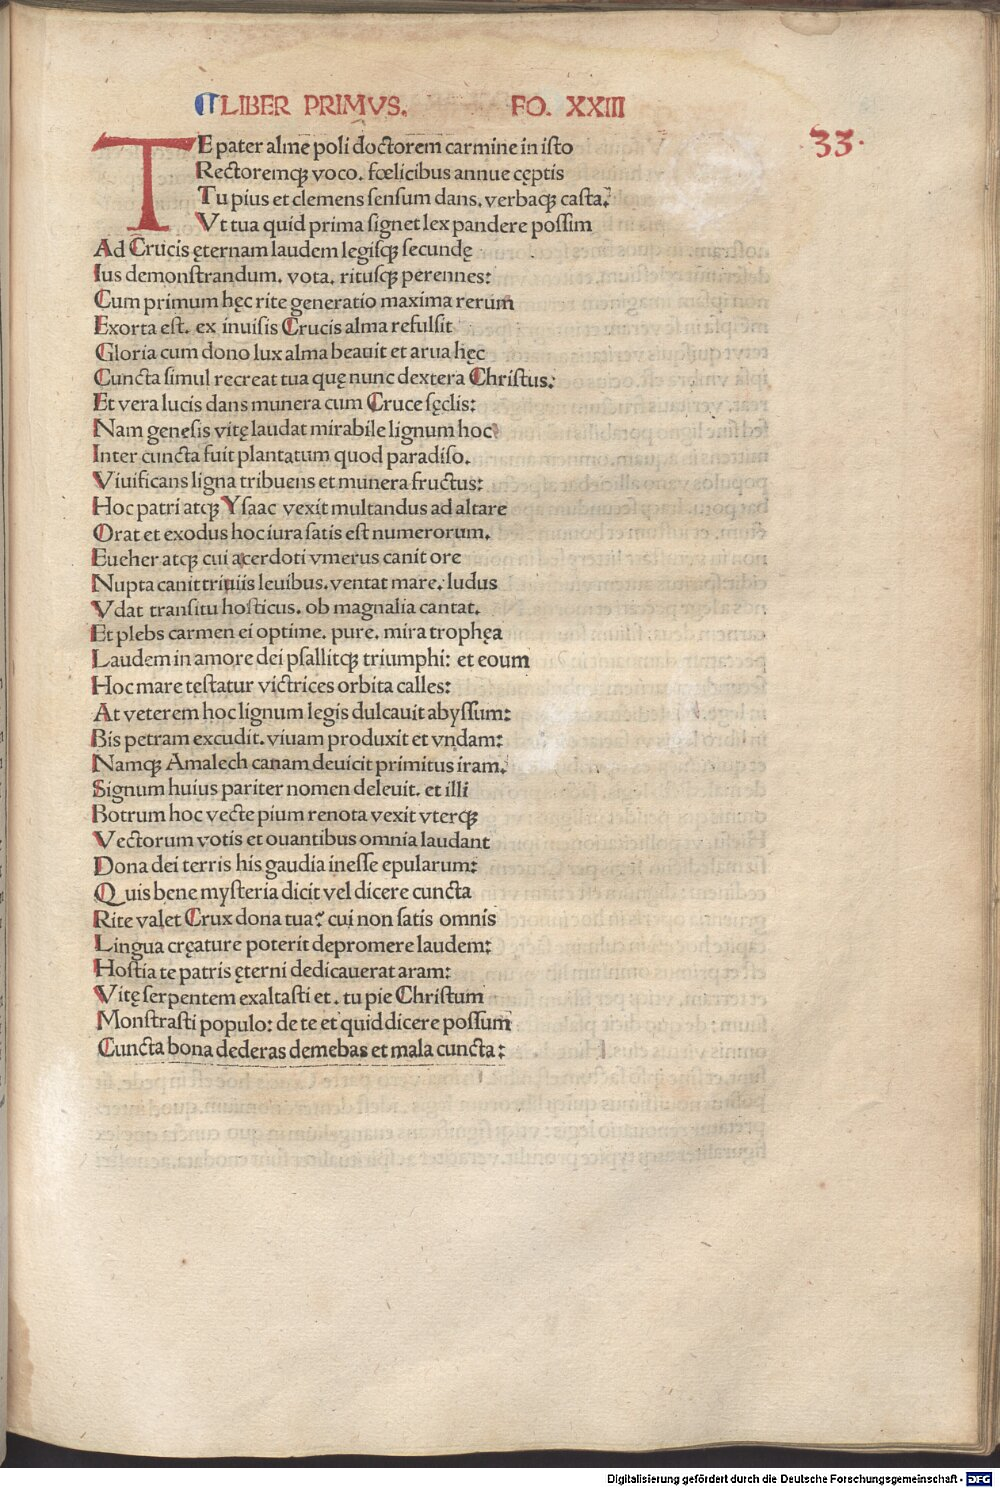 LIBER PRIMVS. FO. XXIII
33.
TE pater alme poli doctorem carmine in isto
Rectoremqꝫ voco. fœlicibus annue cęptis
Tu pius et clemens sensum dans. verbaqꝫ casta:
Vt tua quid prima signet lex pandere possim
Ad Crucis ęternam laudem legisqꝫ secundę
Ius demonstrandum. vota. ritusqꝫ perennes:
Cum primum hęc rite generatio maxima rerum
Exorta est. ex inuisis Crucis alma refulsit
Gloria cum dono lux alma beauit et arua hęc
Cuncta simul recreat tua quę nunc dextera Christus:
Et vera lucis dans munera cum Cruce sęclis:
Nam genesis vitę laudat mirabile lignum hoc
Inter cuncta fuit plantatum quod paradiso.
Viuificans ligna tribuens et munera fructus:
Hoc patri atqꝫ Ysaac vexit multandus ad altare
Orat et exodus hoc iura satis est numerorum.
Eueher atqꝫ cui acerdoti vmerus canit ore
Nupta canit triuiis leuibus. ventat mare: ludus
Vdat transitu hosticus. ob magnalia cantat.
Et plebs carmen ei optime. pure. mira trophęa
Laudem in amore dei psallitqꝫ triumphi: et eoum
Hoc mare testatur victrices orbita calles:
At veterem hoc lignum legis dulcauit abyssum:
Bis petram excudit. viuam produxit et vndam:
Namqꝫ Amalech canam deuicit primitus iram.
Signum huius pariter nomen deleuit. et illi
Botrum hoc vecte pium renota vexit vterqꝫ
Vectorum votis et ouantibus omnia laudant
Dona dei terris his gaudia inesse epularum:
Quis bene mysteria dicit vel dicere cuncta
Rite valet Crux dona tua? cui non satis omnis
Lingua creature poterit depromere laudem:
Hostia te patris ęterni dedicauerat aram:
Vitę serpentem exaltasti et. tu pie Christum
Monstrasti populo: de te et quid dicere possum
Cuncta bona dederas demebas et mala cuncta:
Digitalisierung gefördert durch die Deutsche Forschungsgemeinschaft - DFG